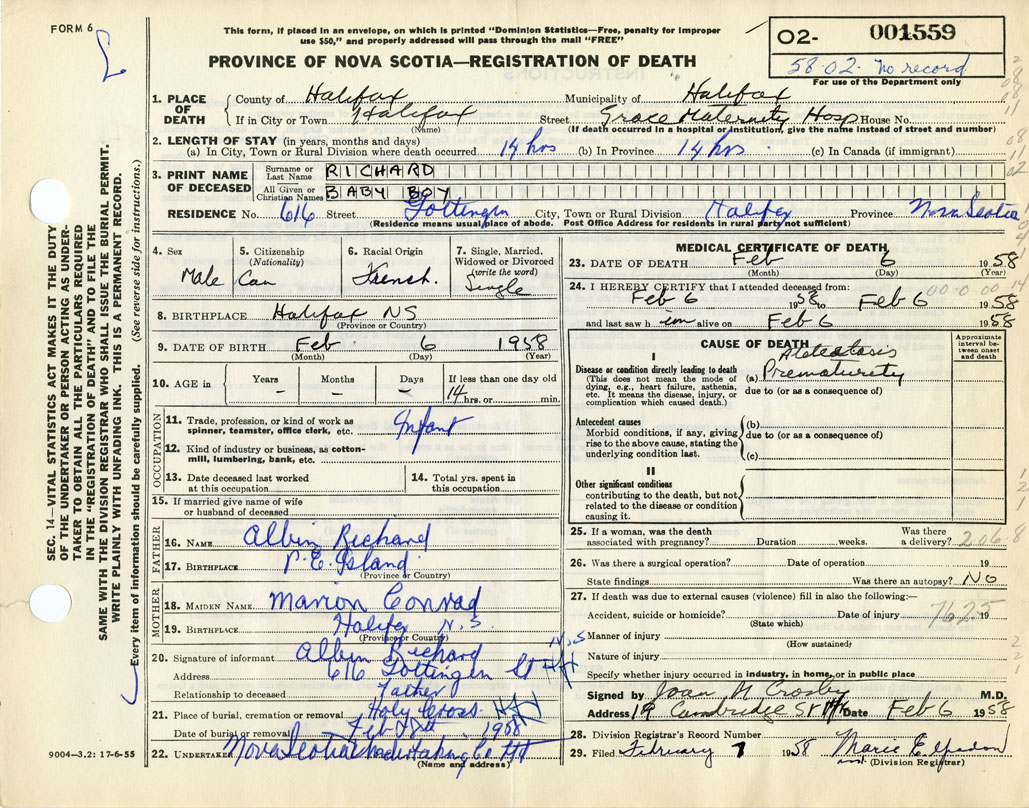 FORM 6
This form, if placed in an envelope, on which is printed "Dominion Statistics—Free, penalty for improper
use $50," and properly addressed will pass through the mail "FREE"
PROVINCE OF NOVA SCOTIA—REGISTRATION OF DEATH
02- 001559
58-02- no record
For use of the Department only
1. PLACE OF DEATH
County of Halifax Municipality of Halifax
If in City or Town Halifax Street Grace Maternity Hosp House No.
(Name) (If death occurred in a hospital or institution, give the name instead of street and number)
2. LENGTH OF STAY (in years, months and days)
(a) In City, Town or Rural Division where death occurred 14 hrs (b) In Province 14 hrs (c) In Canada (if immigrant)
3. PRINT NAME OF DECEASED
Surname or Last Name RICHARD
All Given or Christian Names BABY BOY
RESIDENCE No. 616 Street Gottingen City, Town or Rural Division Halifax Province Nova Scotia
(Residence means usual place of abode. Post Office Address for residents in rural parts not sufficient)
4. Sex Male
5. Citizenship (Nationality) Can
6. Racial Origin French.
7. Single, Married, Widowed or Divorced (write the word) Single
8. BIRTHPLACE Halifax NS
(Province or Country)
9. DATE OF BIRTH Feb 6 1958
(Month) (Day) (Year)
10. AGE in Years - Months - Days - If less than one day old 14 hrs. or min.
OCCUPATION
11. Trade, profession, or kind of work as spinner, teamster, office clerk, etc. Infant
12. Kind of industry or business, as cotton-mill, lumbering, bank, etc.
13. Date deceased last worked at this occupation
14. Total yrs. spent in this occupation
15. If married give name of wife or husband of deceased
FATHER
16. NAME Albin Richard
17. BIRTHPLACE P.E. Island
(Province or Country)
MOTHER
18. MAIDEN NAME Marion Conrad
19. BIRTHPLACE Halifax N.S.
(Province or Country)
20. Signature of informant Albin Richard
Address 616 Gottingen St Hfx N.S
Relationship to deceased Father
21. Place of burial, cremation or removal Holy Cross Hfx
Date of burial or removal Feb 1958
22. UNDERTAKER Nova Scotia Undertaking Co Hfx
(Name and address)
MEDICAL CERTIFICATE OF DEATH
23. DATE OF DEATH Feb 6 1958
(Month) (Day) (Year)
24. I HEREBY CERTIFY that I attended deceased from:
Feb 6 1958 to Feb 6 1958
and last saw him alive on Feb 6 1958
CAUSE OF DEATH
Approximate interval between onset and death
I
Disease or condition directly leading to death
(This does not mean the mode of dying, e.g., heart failure, asthenia, etc. It means the disease, injury, or complication which caused death.)
(a) Prematurity
due to (or as a consequence of)
Antecedent causes
Morbid conditions, if any, giving rise to the above cause, stating the underlying condition last.
(b)
due to (or as a consequence of)
(c)
II
Other significant conditions
contributing to the death, but not related to the disease or condition causing it.
25. If a woman, was the death associated with pregnancy? Duration weeks. Was there a delivery? 206.8
26. Was there a surgical operation? Date of operation 19
State findings Was there an autopsy? NO
27. If death was due to external causes (violence) fill in also the following:—
Accident, suicide or homicide? Date of injury 19
7625
(State which)
Manner of injury
(How sustained)
Nature of injury
Specify whether injury occurred in industry, in home, or in public place
Signed by Joan M Crosby M.D.
Address 19 Cambridge St Hfx Date Feb 6 1958
28. Division Registrar's Record Number
29. Filed February 7 1958 Marie E
(Division Registrar)
SEC. 14—VITAL STATISTICS ACT MAKES IT THE DUTY
OF THE UNDERTAKER OR PERSON ACTING AS UNDER-
TAKER TO OBTAIN ALL THE PARTICULARS REQUIRED
IN THE "REGISTRATION OF DEATH" AND TO FILE THE
SAME WITH THE DIVISION REGISTRAR WHO SHALL ISSUE THE BURIAL PERMIT.
WRITE PLAINLY WITH UNFADING INK. THIS IS A PERMANENT RECORD.
Every item of information should be carefully supplied. (See reverse side for instructions.)
9004—3.2: 17-6-55